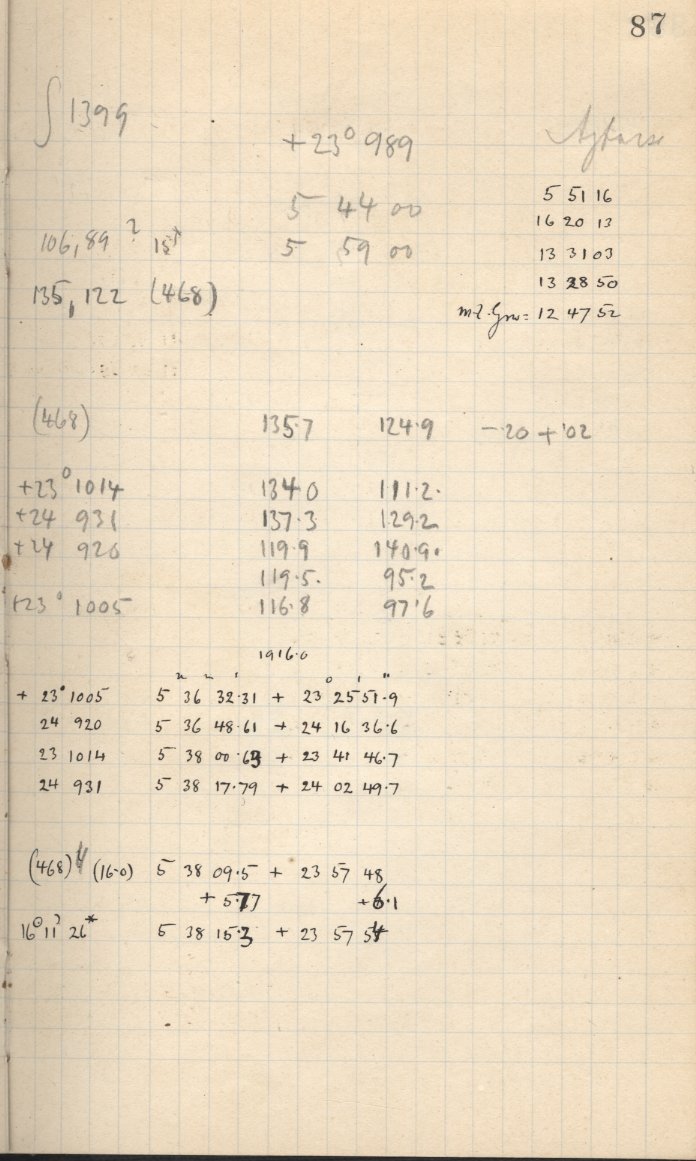 87
∫ 1399
+23° 989
5 44 00
5 51 16
16 20 13
106,89 ? 15
5 59 00
13 31 03
135,122 (468)
13 28 50
= 12 47 52
(468) 135.7 124.9 -.20 + .02
+23° 1014 134.0 111.2.
+24 931 137.3 129.2
+24 920 119.9 140.9.
119.5. 95.2
+23° 1005 116.8 97.6
1916.0
h m s ° ' "
+ 23° 1005 5 36 32.31 + 23 25 51.9
24 920 5 36 48.61 + 24 16 36.6
23 1014 5 38 00.63 + 23 41 46.7
24 931 5 38 17.79 + 24 02 49.7
(468) (16.0) 5 38 09.5 + 23 57 48
+ 5.77 +6.1
5 38 15.3 + 23 57 54